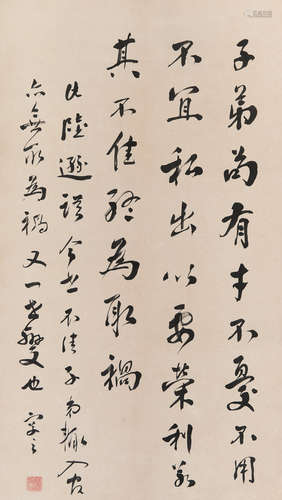 子弟苟有才不憂不用
不宜私出以要榮利若
其不佳終為取禍
此陸遜語今世不佳子弟輒入官
亦無所為禍又一世變也